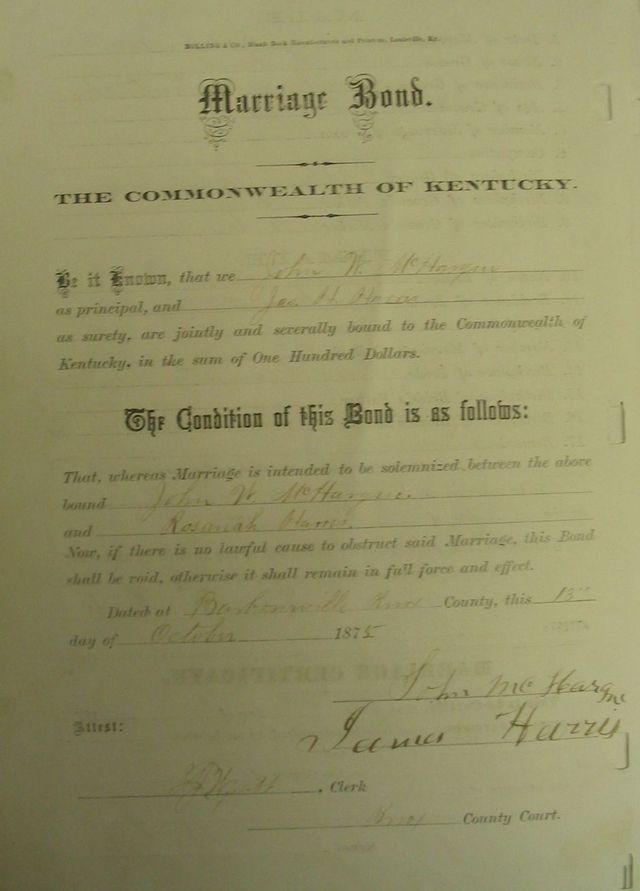 BOLLING & CO., Blank Book Manufacturers and Printers, Louisville, Ky.
Marriage Bond.
THE COMMONWEALTH OF KENTUCKY.
Be it Known, that we John W. McHargue
as principal, and Jas H. Harris
as surety, are jointly and severally bound to the Commonwealth of
Kentucky, in the sum of One Hundred Dollars.
The Condition of this Bond is as follows:
That, whereas Marriage is intended to be solemnized between the above
bound John W McHargue.
and Rosanah Harris.
Now, if there is no lawful cause to obstruct said Marriage, this Bond
shall be void, otherwise it shall remain in full force and effect.
Dated at Barbourville Knox County, this 13"
day of October 1875
John McHargue
Attest: James Harris
Clerk
Knox County Court.